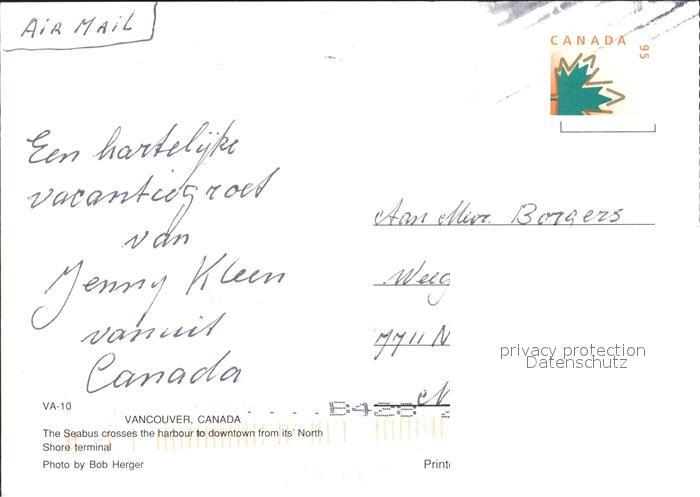 AIR MAIL
CANADA 95
Een hartelijke
vacantiegroet
van
Jenny Kleen
vanuit
Canada
Aan Mevr. Borgers
Weeg
7711 N
N
privacy protection
Datenschutz
VA-10
VANCOUVER, CANADA
The Seabus crosses the harbour to downtown from its' North
Shore terminal
Photo by Bob Herger
Printe